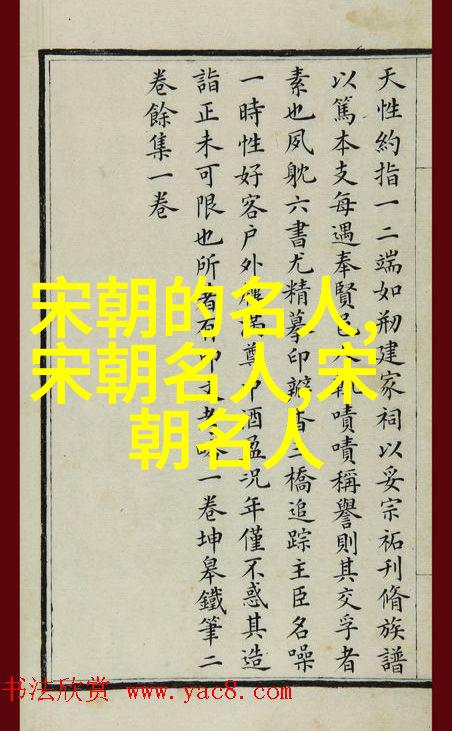 天性約指一二端如刱建家祠以妥宗祏刊脩族譜
以篤本支每遇奉賢邑嘖嘖稱譽則其交孚者
素也夙躭六書尤精摹印瓣香三橋追踪主臣名噪
一時性好客戶外屨滿尊中酒盈況年僅不惑其造
詣正未可限也所著有印文考略一卷坤臯鐵筆二
卷餘集一卷
宋朝的名人,
宋朝名人,宋
朝名人
书法欣赏 www.yac8.com